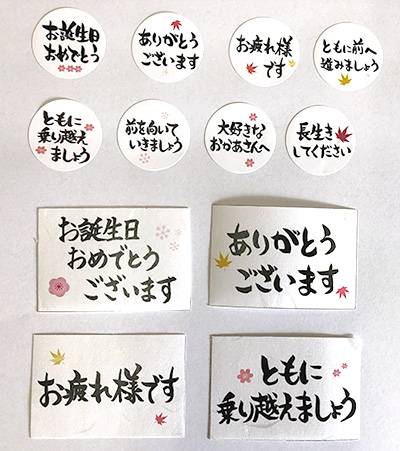 お誕生日
おめでとう
ありがとう
ございます
お疲れ様
です
ともに前へ
進みましょう
ともに
乗り越え
ましょう
前を向いて
いきましょう
大好きな
おかあさんへ
長生き
してください
お誕生日
おめでとう
ございます
ありがとう
ございます
お疲れ様です
ともに
乗り越えましょう